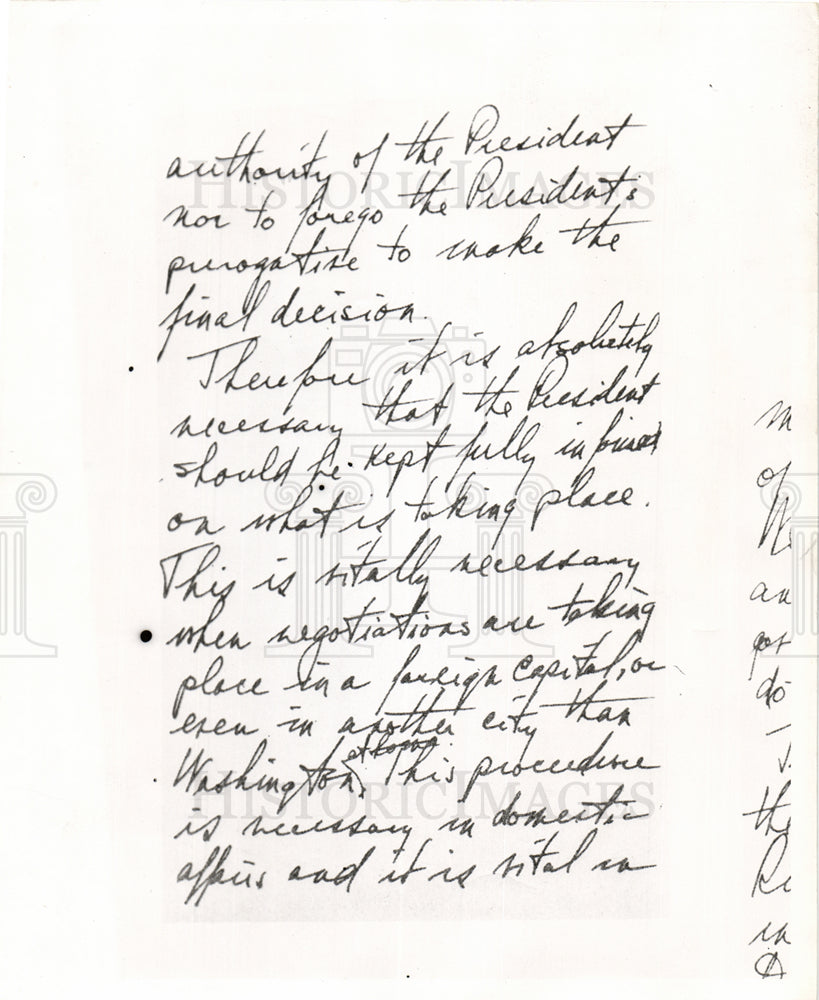 authority of the President
nor to forego the President's
prerogative to make the
final decision.
Therefore it is absolutely
necessary that the President
should be kept fully informed
on what is taking place.
This is vitally necessary
when negotiations are taking
place in a foreign capital, or
even in another city than
at home
Washington. This procedure
is necessary in domestic
affairs and it is vital in
m
of
an
do
the
in
HISTORIC IMAGES
HISTORIC IMAGES